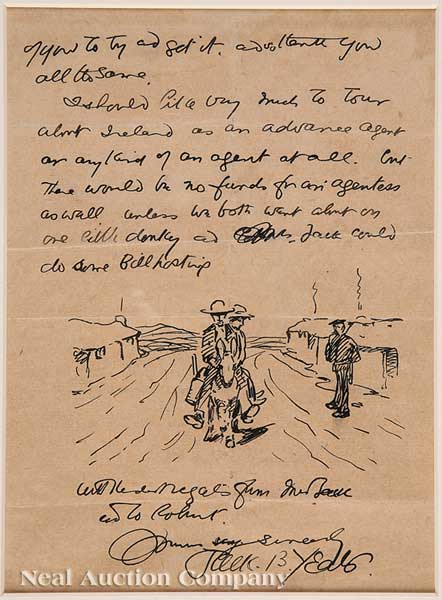 of you to try ad get it. and thank you
all the same.
I should like very much to tour
about Ireland as an advance agent
or any kind of an agent at all. but
there would be no funds for an agentess
as well unless we both went about on
one little donkey ad Jack could
do some Billposting
with kindest regards from Mrs Jack
ad to Robert.
Yours very sincerely
Jack. B. Yeats.
Neal Auction Company